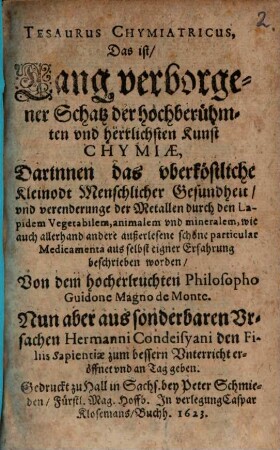 2.
TESAURUS CHYMIATRICUS,
Das ist/
Lang verborge-
ner Schatz der hochberühm-
ten vnd herrlichsten Kunst
CHYMIÆ,
Darinnen das vberköstliche
Kleinodt Menschlicher Gesundheit/
vnd verenderunge der Metallen durch den La-
pidem Vegetabilem, animalem vnd mineralem, wie
auch allerhand andere außerlesene schöne particular
Medicamenta aus selbst eigner Erfahrung
beschrieben worden/
Von dem hocherleuchten Philosopho
Guidone Magno de Monte.
Nun aber aus sonderbaren Vr-
sachen Hermanni Condeisyani den Fi-
liis sapientiæ zum bessern Vnterricht er-
öffnet vnd an Tag geben.
Gedruckt zu Hall in Sachs. bey Peter Schmie-
den/ Fürstl. Mag. Hoffb. In verlegung Caspar
Klosemans/ Buchh. 1623.